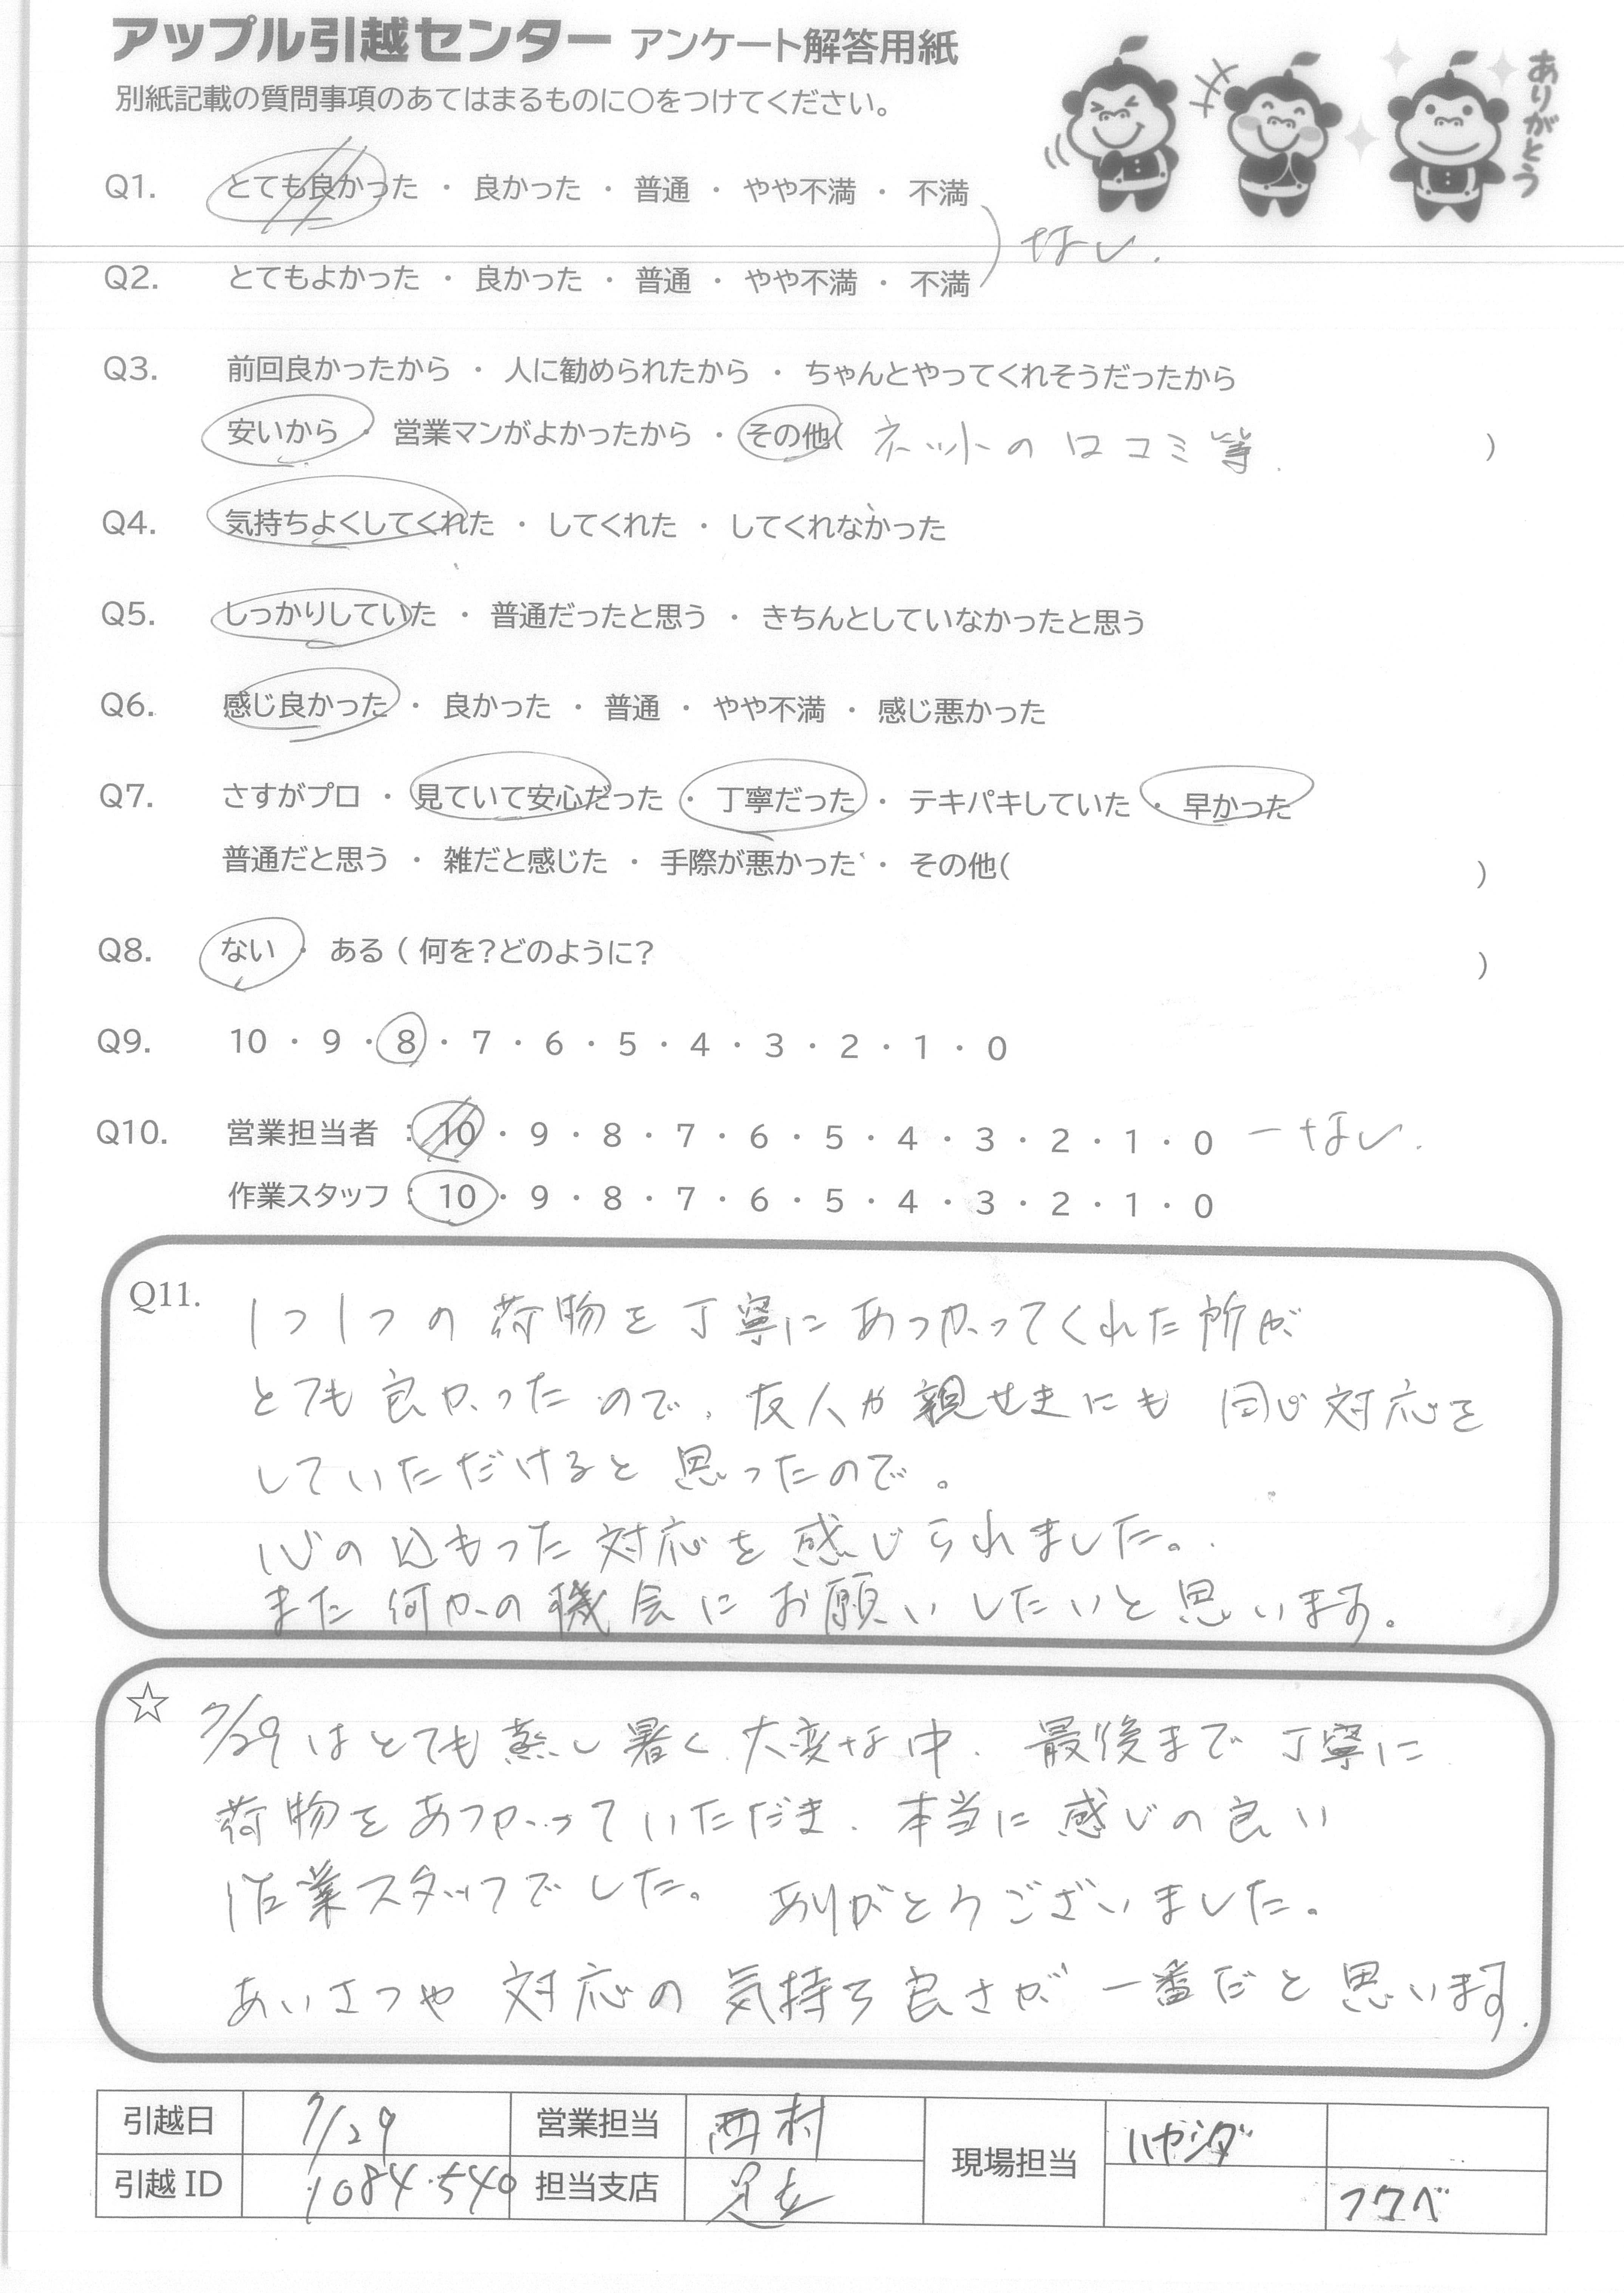 アップル引越センター アンケート解答用紙
ありがとう
別紙記載の質問事項のあてはまるものに〇をつけてください。
Q1. とても良かった ・ 良かった ・ 普通 ・ やや不満 ・ 不満
なし.
Q2. とてもよかった ・ 良かった ・ 普通 ・ やや不満 ・ 不満
Q3. 前回良かったから ・ 人に勧められたから ・ ちゃんとやってくれそうだったから
安いから ・ 営業マンがよかったから ・ その他( ネットの口コミ等. )
Q4. 気持ちよくしてくれた ・ してくれた ・ してくれなかった
Q5. しっかりしていた ・ 普通だったと思う ・ きちんとしていなかったと思う
Q6. 感じ良かった ・ 良かった ・ 普通 ・ やや不満 ・ 感じ悪かった
Q7. さすがプロ ・ 見ていて安心だった ・ 丁寧だった ・ テキパキしていた ・ 早かった
普通だと思う ・ 雑だと感じた ・ 手際が悪かった ・ その他( )
Q8. ない ・ ある ( 何を?どのように? )
Q9. 10 ・ 9 ・ 8 ・ 7 ・ 6 ・ 5 ・ 4 ・ 3 ・ 2 ・ 1 ・ 0
Q10. 営業担当者 : 10 ・ 9 ・ 8 ・ 7 ・ 6 ・ 5 ・ 4 ・ 3 ・ 2 ・ 1 ・ 0 ー なし.
作業スタッフ : 10 ・ 9 ・ 8 ・ 7 ・ 6 ・ 5 ・ 4 ・ 3 ・ 2 ・ 1 ・ 0
Q11. 1つ1つの荷物を丁寧にあつかってくれた所が
とても良かったので、友人か親せきにも同じ対応を
していただけると思ったので。
心の込もった対応を感じられました。
また何かの機会にお願いしたいと思います。
☆ 7/29はとても蒸し暑く、大変な中、最後まで丁寧に
荷物をあつかっていただき、本当に感じの良い
作業スタッフでした。ありがとうございました。
あいさつや対応の気持ち良さが一番だと思います.
引越日 7/29 営業担当 西村 現場担当 ハヤシダ
引越 ID 1084540 担当支店 足立 フクベ